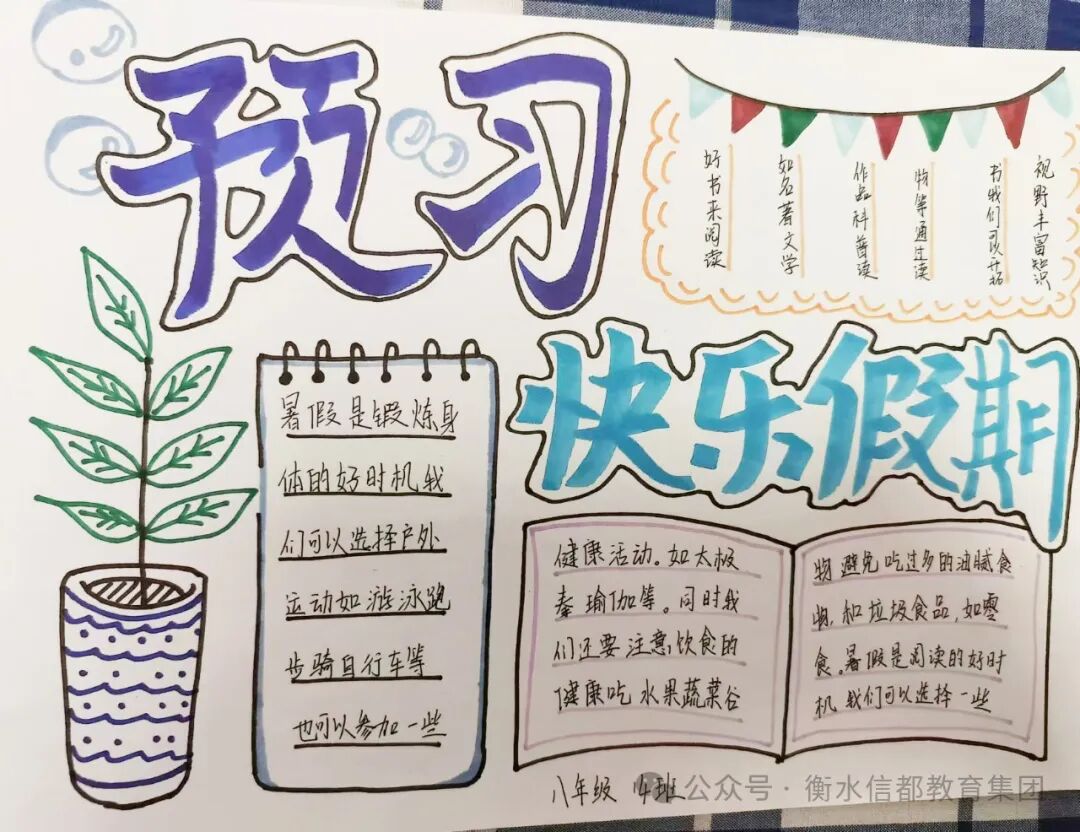 预习
暑假是锻炼身
体的好时机我
们可以选择户外
运动如游泳跑
步骑自行车等
也可以参加一些
快乐假期
健康活动。如太极
秦瑜伽等。同时我
们还要注意饮食的
健康吃水果蔬菜谷
物避免吃过多的油腻食
物,和垃圾食品,如零
食。暑假是阅读的好时
机我们可以选择一些
好书来阅读
如名著文学
作品科普读
物等通过读
书我们可以开拓
视野丰富知识
八年级 4班
公众号·衡水信都教育集团